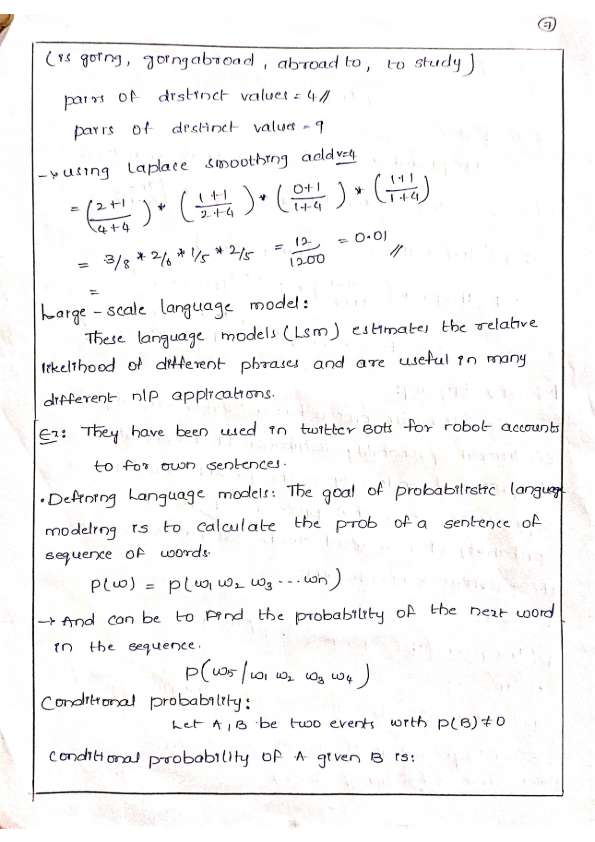 7
(is going, going abroad, abroad to, to study)
pairs of distinct values = 4//
pairs of distinct values = 9
→ using Laplace smoothing add v=4
= (2+1/4+4) * (1+1/2+4) * (0+1/1+4) * (1+1/1+4)
= 3/8 * 2/6 * 1/5 * 2/5 = 12/1200 = 0.01 //
=
Large - scale language model:
These language models (Lsm) estimates the relative
likelihood of different phrases and are useful in many
different nlp applications.
Ex: They have been used in twitter Bots for robot accounts
to for own sentences.
• Defining Language models: The goal of probabilistic language
modeling is to calculate the prob of a sentence of
sequence of words.
p(w) = p(w1 w2 w3 ... wn)
→ And can be to find the probability of the next word
in the sequence.
p(w5/w1 w2 w3 w4)
Conditional probability:
Let A, B be two events with p(B) ≠ 0
conditional probability of A given B is: